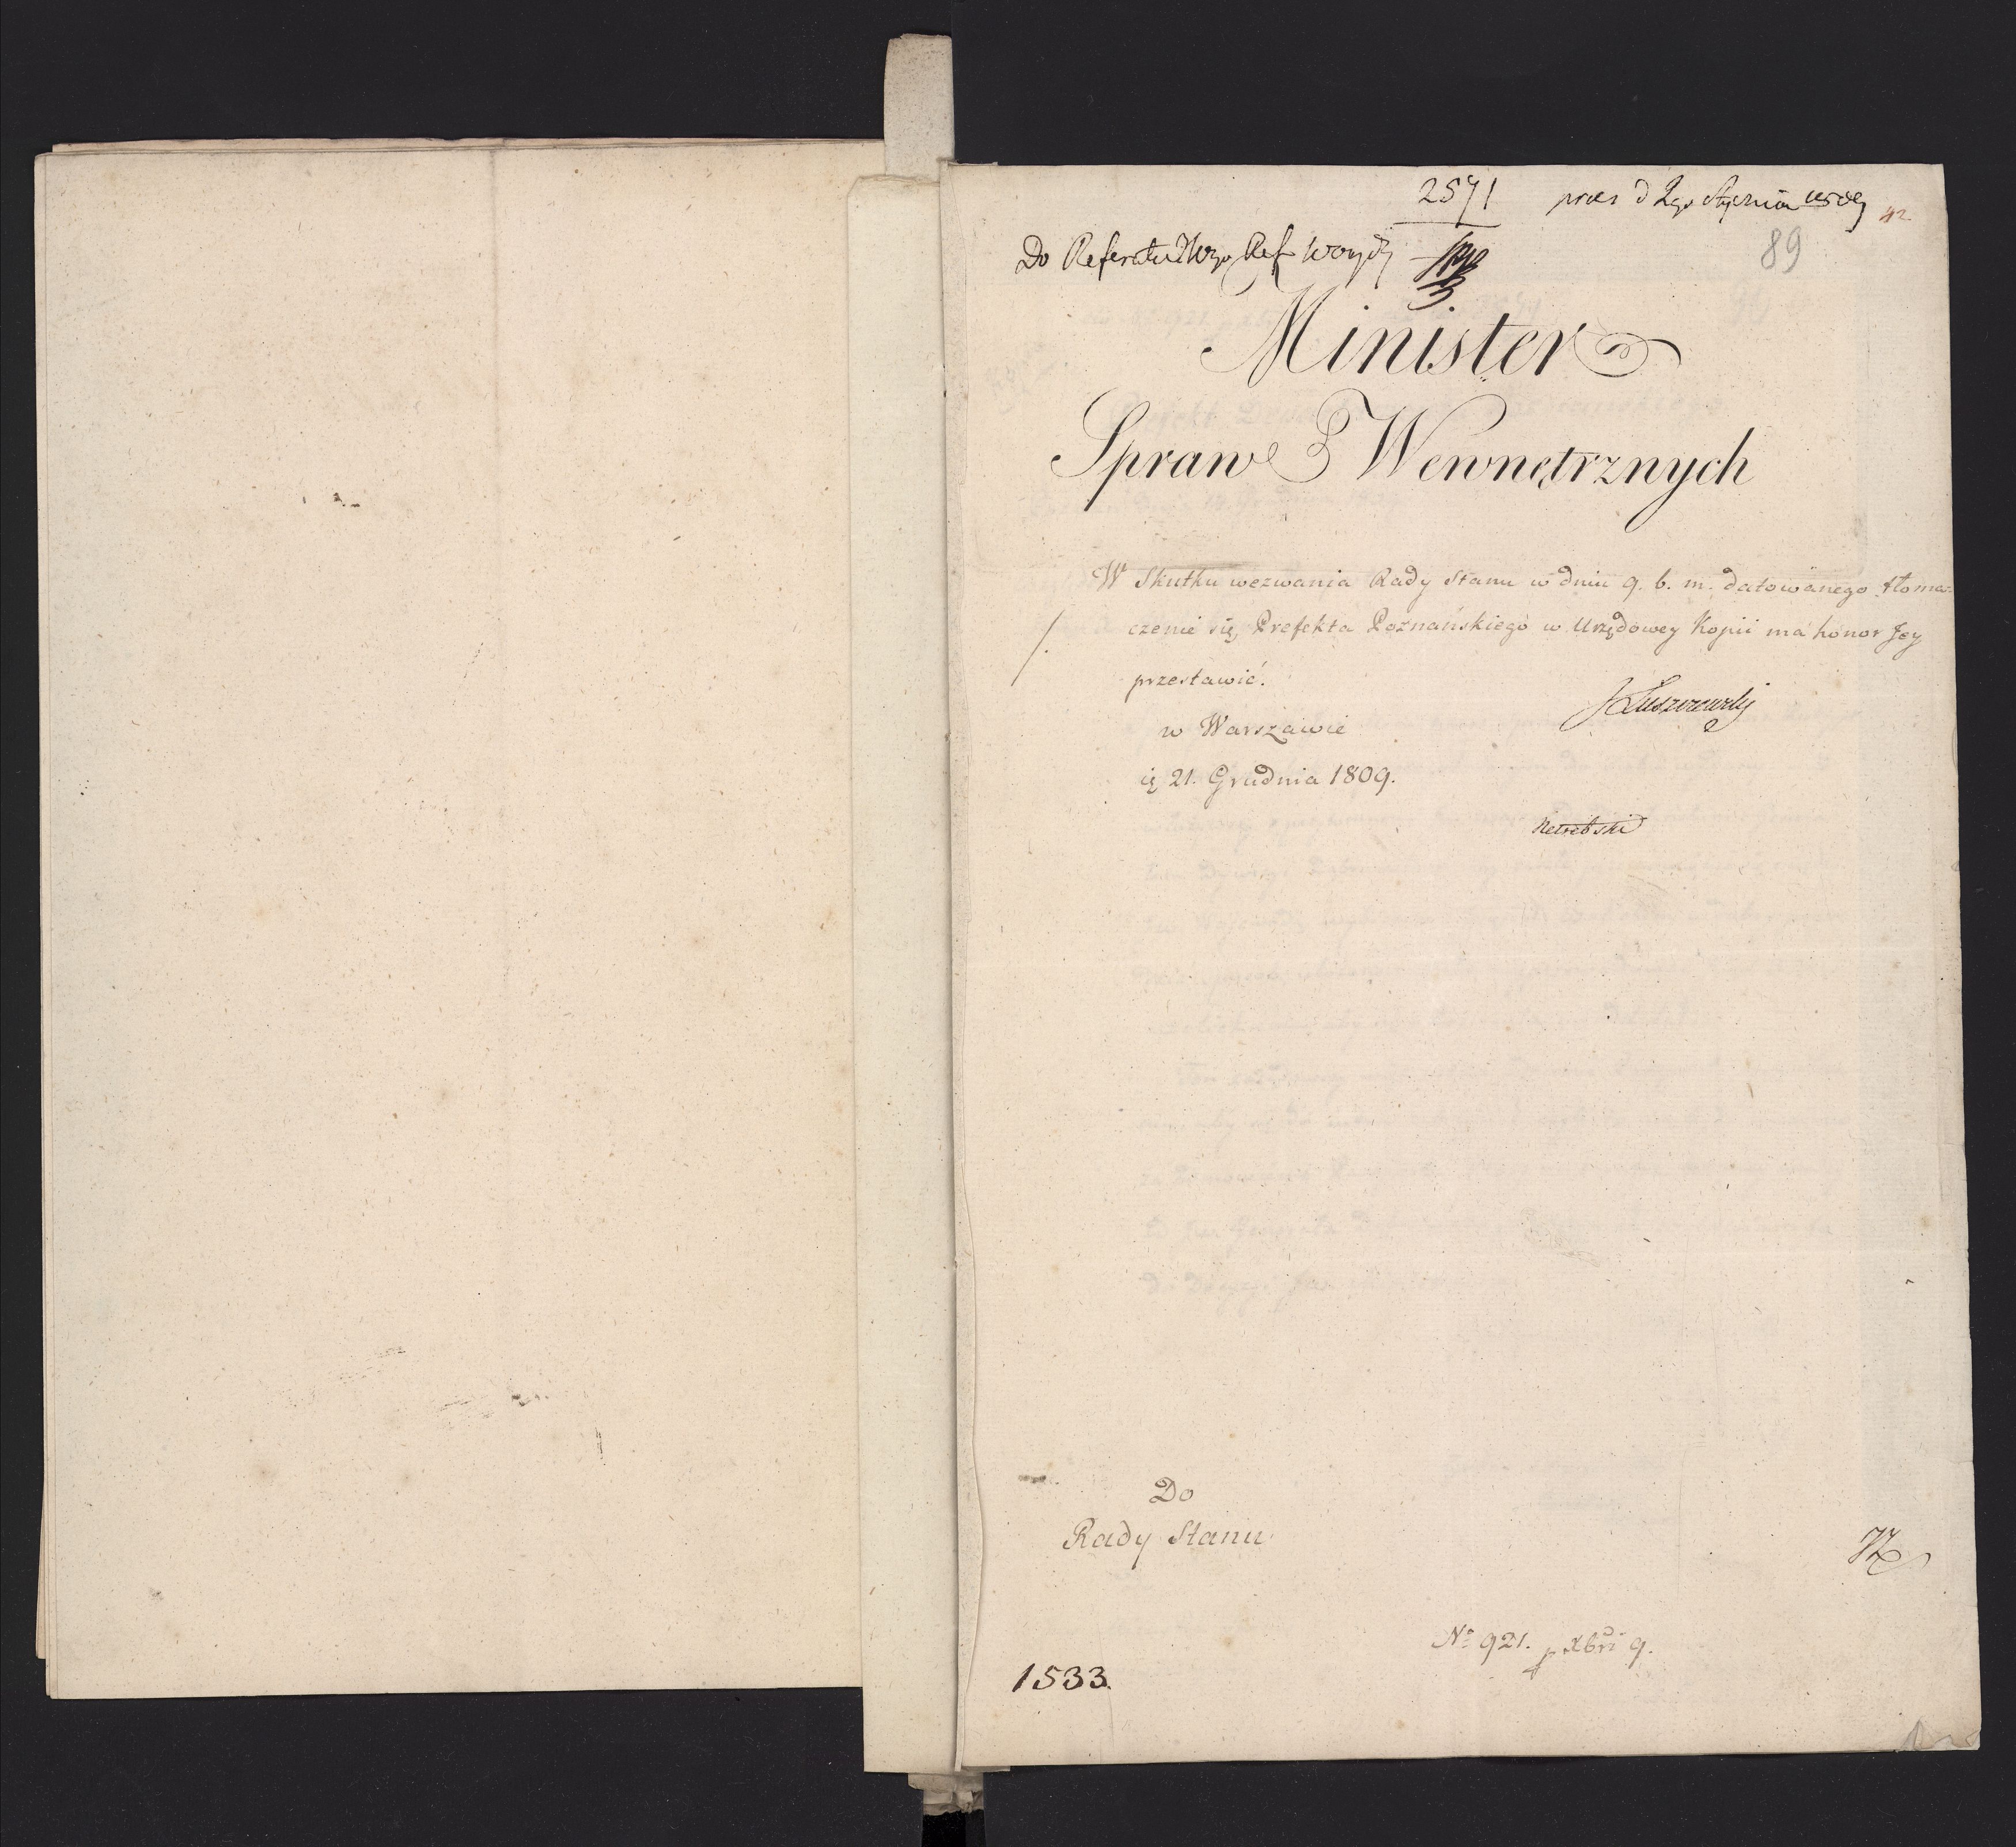 2571
praes d 2go Stycznia
42
89
Do Referatu JWgo Ref
Minister
Spraw Wewnętrznych
W Skutku wezwania Rady Stanu w dniu 9. b. m. datowanego tłoma-
czenie się Prefekta Poznańskiego w Urzędowey Kopii ma honor Jey
przestawić.
JŁuszczewsky
w Warszawie
21. Grudnia 1809.
Netrebski
Do
Rady Stanu
No 921. p Xbri 9.
1533.